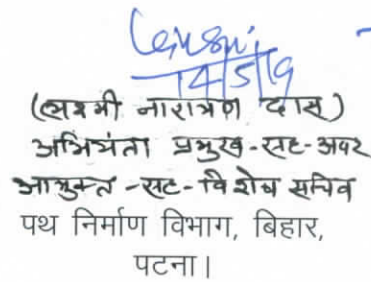 14/5/19
(लक्ष्मी नारायण दास)
अभियंता प्रमुख-सह-अपर
आयुक्त-सह-विशेष सचिव
पथ निर्माण विभाग, बिहार,
पटना।